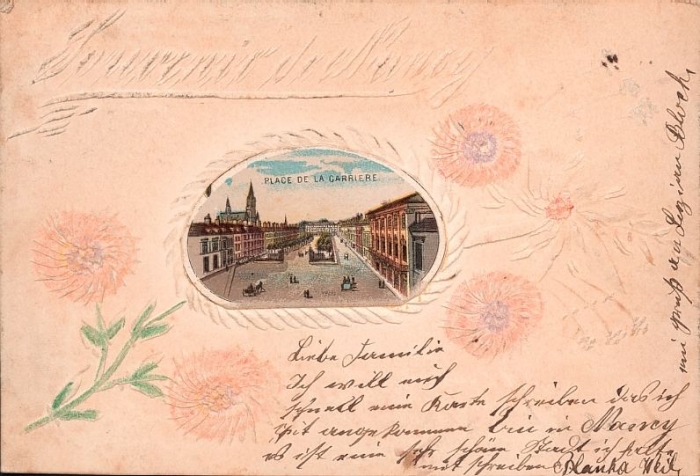 Souvenir de Nancy
PLACE DE LA CARRIERE
Liebe Familie
Ich will euch
schnell eine Karte schreiben das ich
gut angekommen bin in Nancy
es ist eine sehr schöne Stadt ich
mit schreiben Blanka Weil
ein gruß an Luzian Bloch.